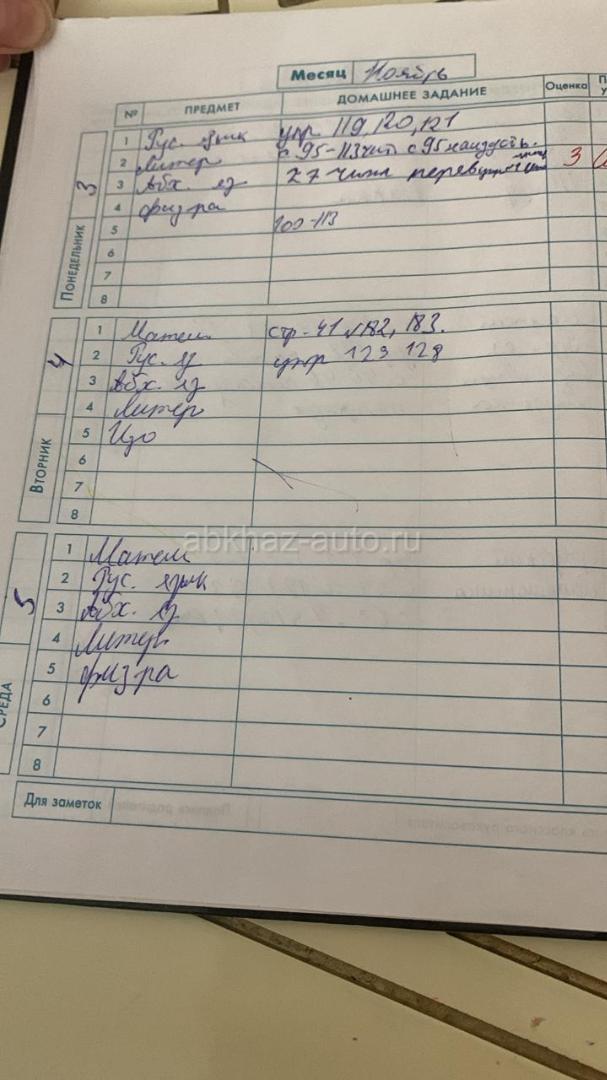 Месяц Ноябрь
№ ПРЕДМЕТ ДОМАШНЕЕ ЗАДАНИЕ Оценка
3 ПОНЕДЕЛЬНИК
1 Рус. язык упр. 119, 120, 121
2 Литер с 95-113 чит с 95 наизусть.
3 Абх. яз 27 чит перев 3
4 физ ра
5 100-113
6
7
8
4 ВТОРНИК
1 Матем стр. 41 №182, 183.
2 Рус. яз упр 123 128
3 Абх. яз
4 Литер
5 Изо
6
7
8
abkhaz-auto.ru
5 СРЕДА
1 Матем
2 Рус. язык
3 Абх. яз
4 Литер
5 физ ра
6
7
8
Для заметок